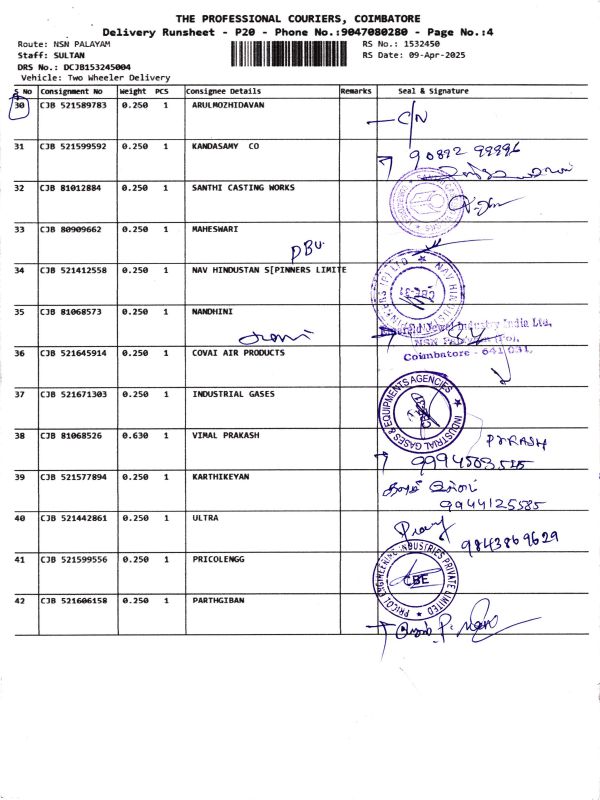 THE PROFESSIONAL COURIERS, COIMBATORE
Delivery Runsheet - P20 - Phone No.:9047080280 - Page No.:4
Route: NSN PALAYAM RS No.: 1532450
Staff: SULTAN RS Date: 09-Apr-2025
DRS No.: DCJB153245004
Vehicle: Two Wheeler Delivery
S No Consignment No Weight PCS Consignee Details Remarks Seal & Signature
30 CJB 521589783 0.250 1 ARULMOZHIDAVAN C/N
31 CJB 521599592 0.250 1 KANDASAMY CO
32 CJB 81012884 0.250 1 SANTHI CASTING WORKS
33 CJB 80909662 0.250 1 MAHESWARI
34 CJB 521412558 0.250 1 NAV HINDUSTAN S[PINNERS LIMITE
35 CJB 81068573 0.250 1 NANDHINI
Industry India Ltd,
Coimbatore - 641 031,
36 CJB 521645914 0.250 1 COVAI AIR PRODUCTS
37 CJB 521671303 0.250 1 INDUSTRIAL GASES
INDUSTRIAL GASES & EQUIPMENTS AGENCIES
38 CJB 81068526 0.630 1 VIMAL PRAKASH
39 CJB 521577894 0.250 1 KARTHIKEYAN
9944125585
40 CJB 521442861 0.250 1 ULTRA
9843869629
41 CJB 521599556 0.250 1 PRICOLENGG
PRICOL ENGINEERING INDUSTRIES PRIVATE LIMITED
CBE
42 CJB 521606158 0.250 1 PARTHGIBAN